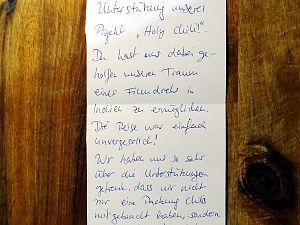 Unterstützung unseres
Projekt "Holy Chili!".
Du hast uns dabei ge-
holfen unseren Traum
eines Filmdrehs in
Indien zu ermöglichen.
Die Reise war einfach
unvergesslich!
Wir haben uns so sehr
über die Unterstützung
gefreut, dass wir nicht
nur eine Packung Chilis
mitgebracht haben, sondern